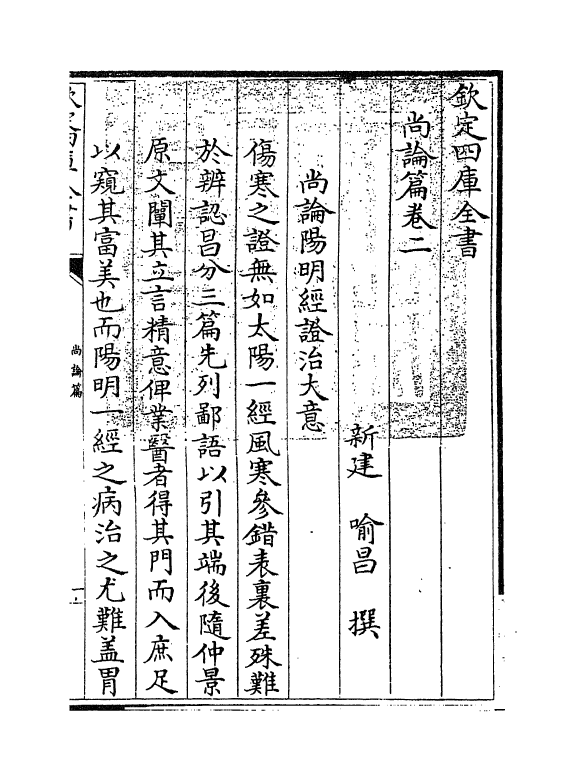 欽定四庫全書
尚論篇卷二
新建 喻昌 撰
尚論陽明經證治大意
傷寒之證無如太陽一經風寒參錯表裏差殊難
於辨認昌分三篇先列鄙語以引其端後隨仲景
原文闡其立言精意俾業醫者得其門而入庶足
以窺其富美也而陽明一經之病治之尤難盖胃
尚論篇